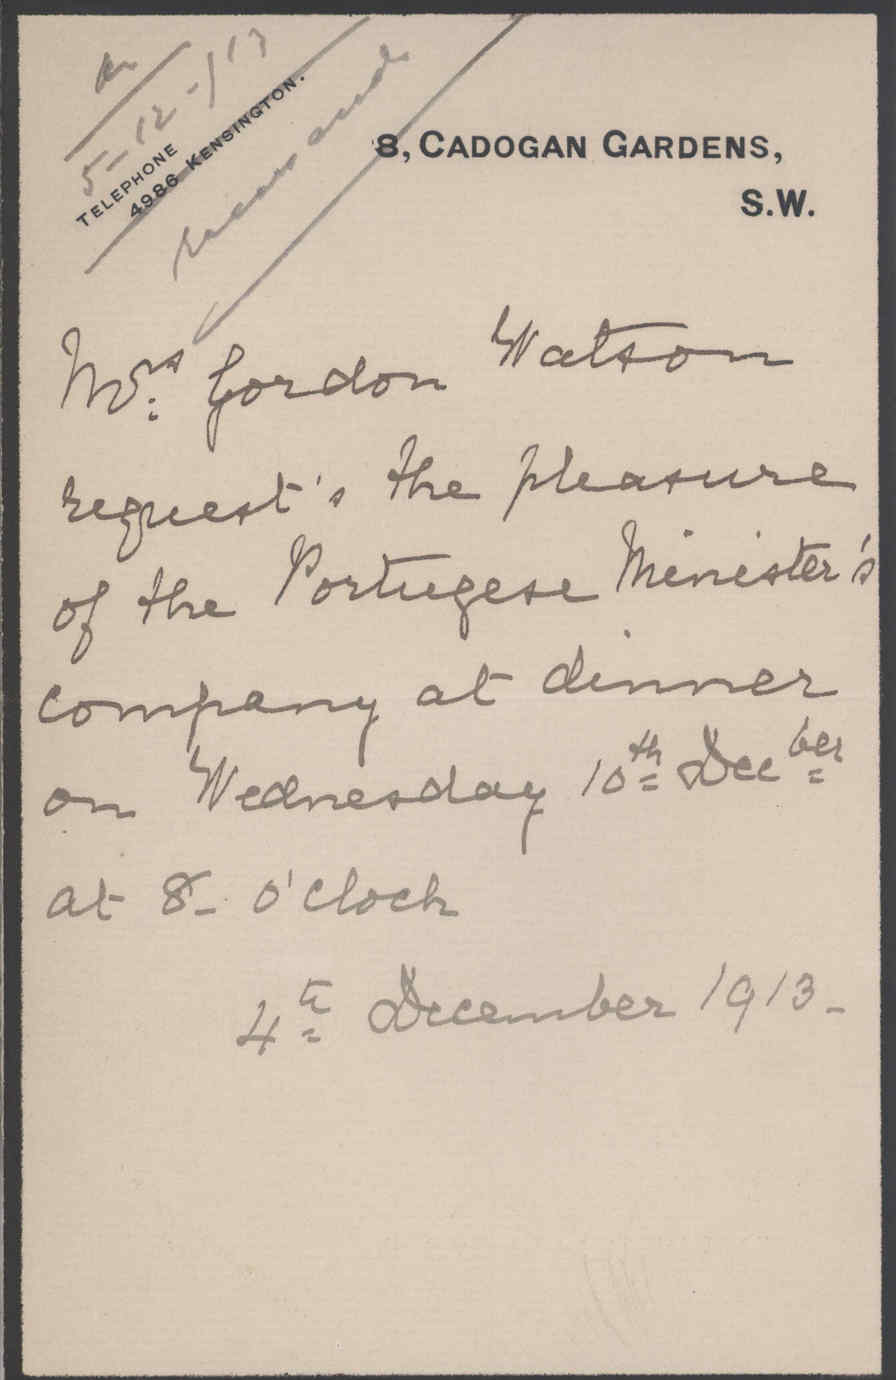 5-12-913
TELEPHONE
4986 KENSINGTON.
recusando
8, CADOGAN GARDENS,
S.W.
Mrs. Gordon Watson
request's the pleasure
of the Portugese Minister's
company at dinner
on Wednesday 10th Decber
at 8- o'clock
4th December 1913-